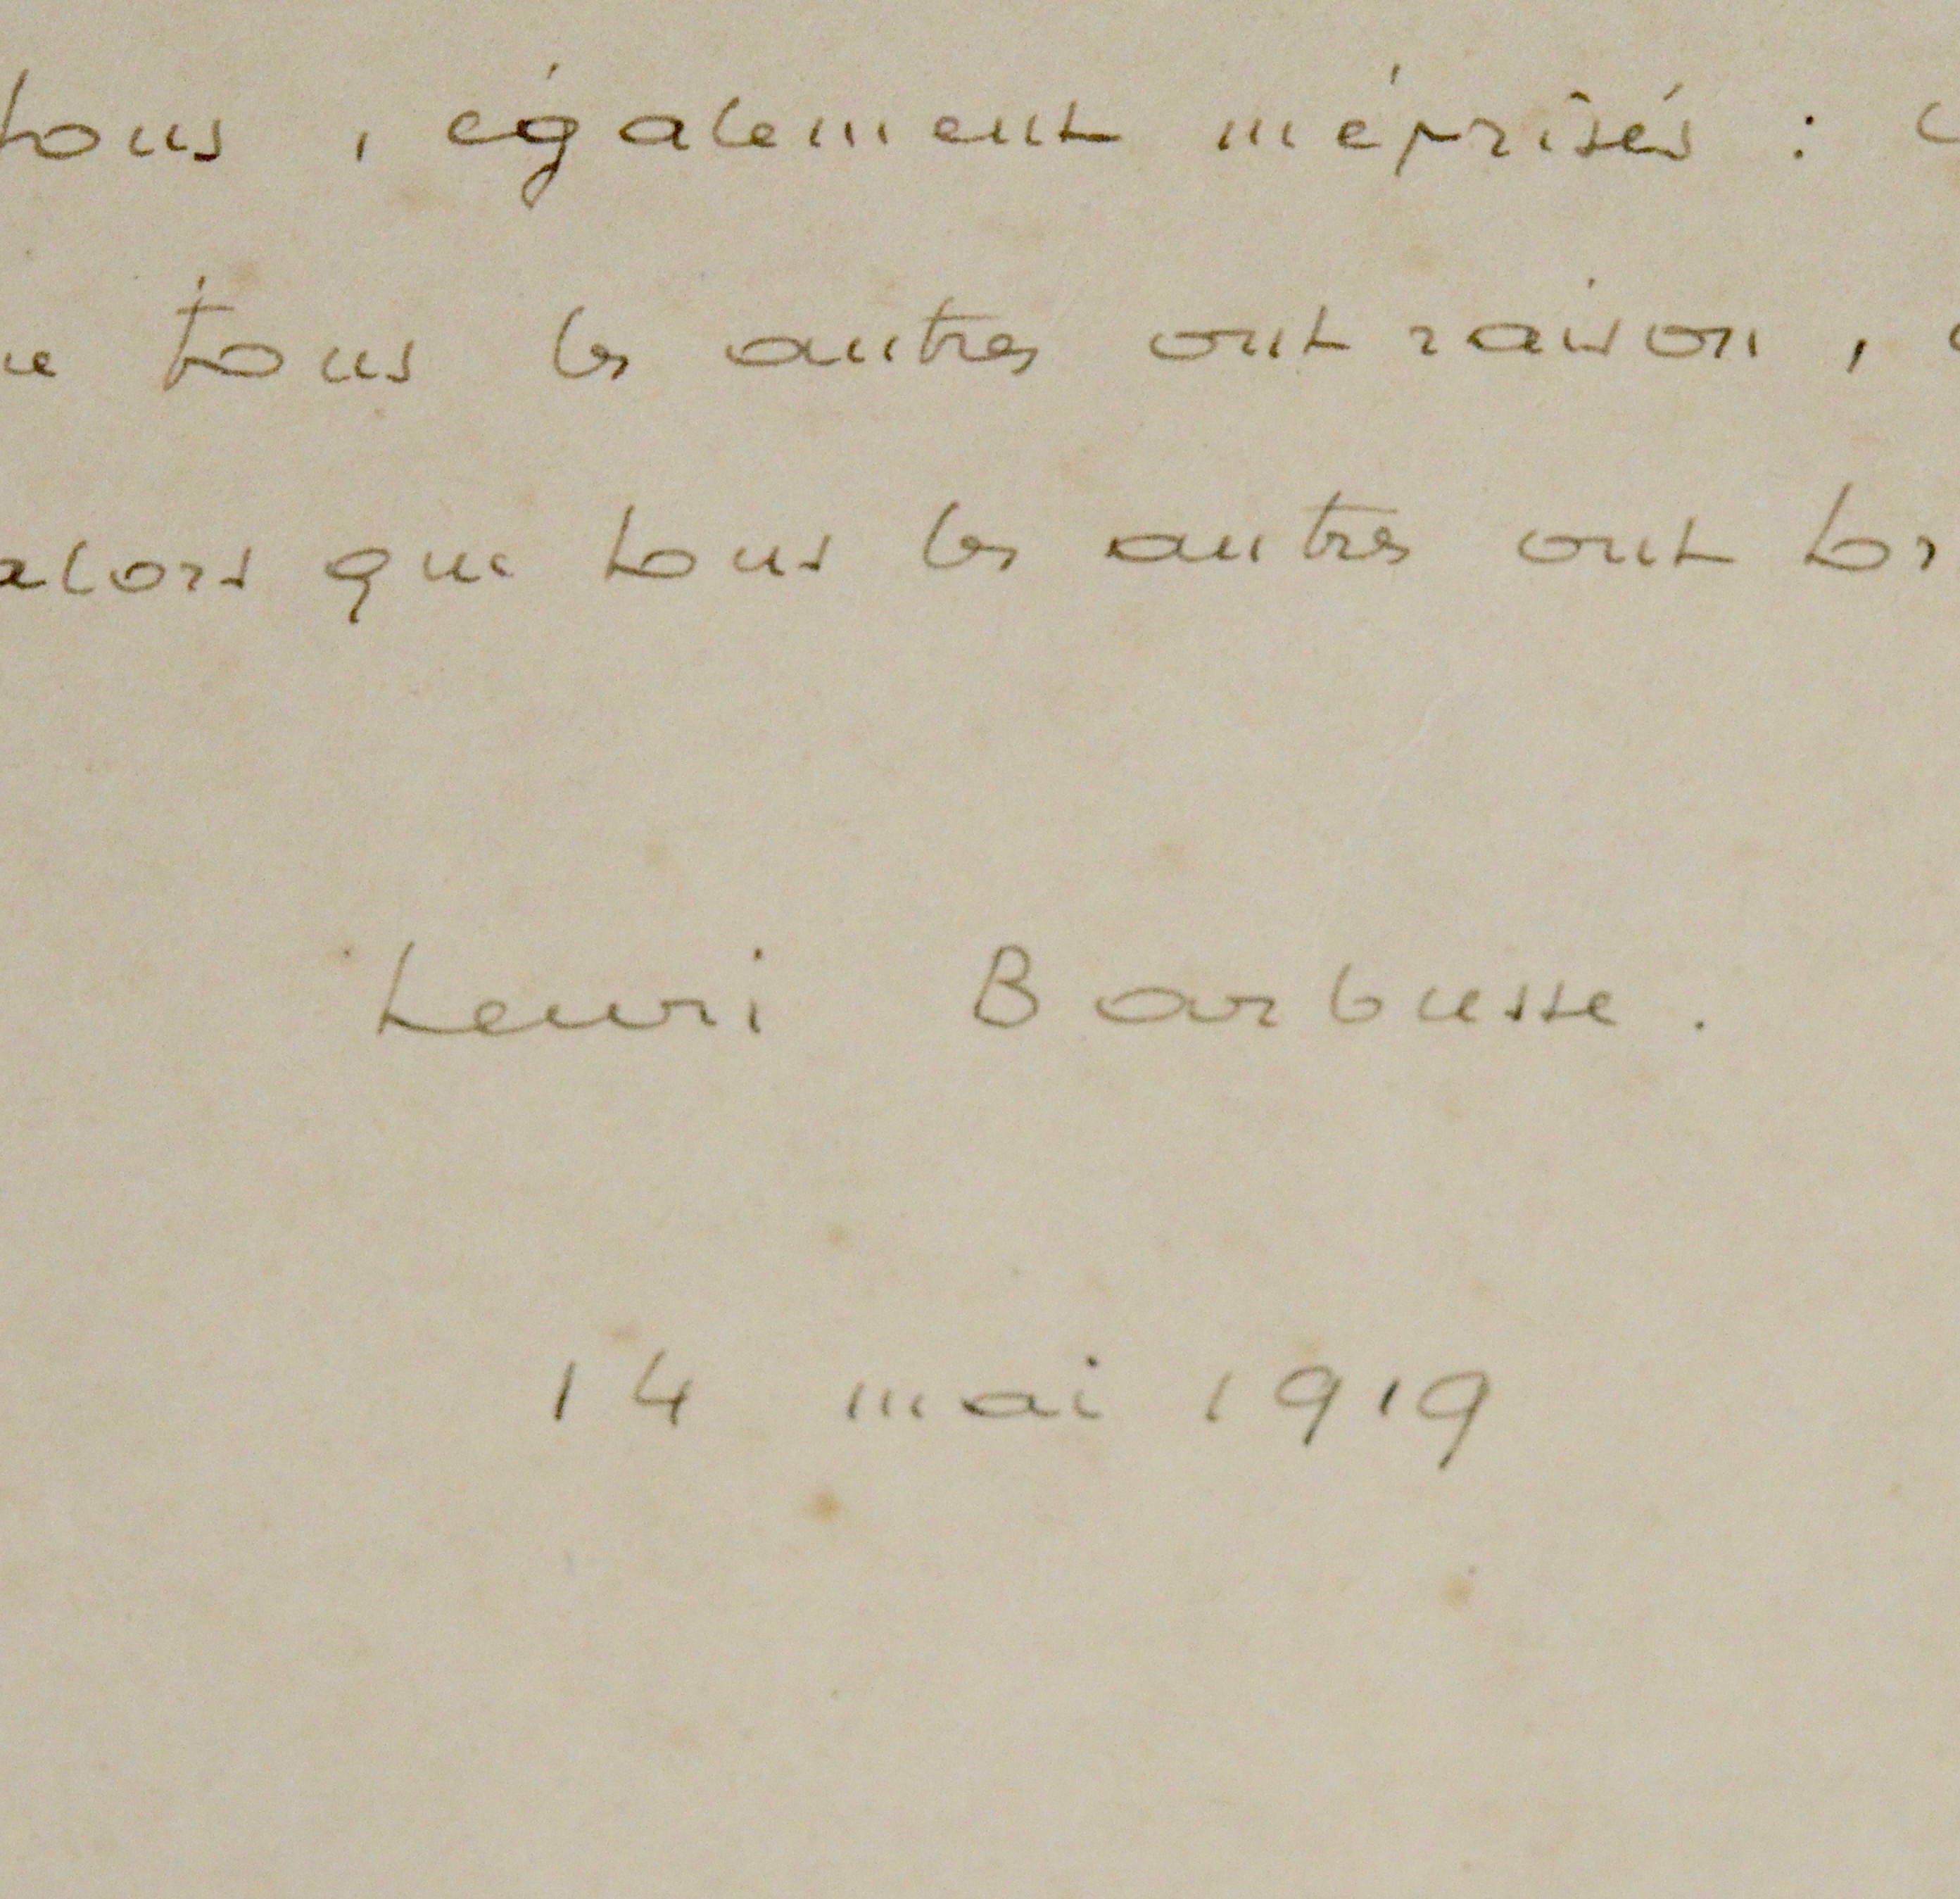 tous, également méprisés :
tous les autres ont raison,
alors que tous les autres ont
Henri Barbusse.
14 mai 1919